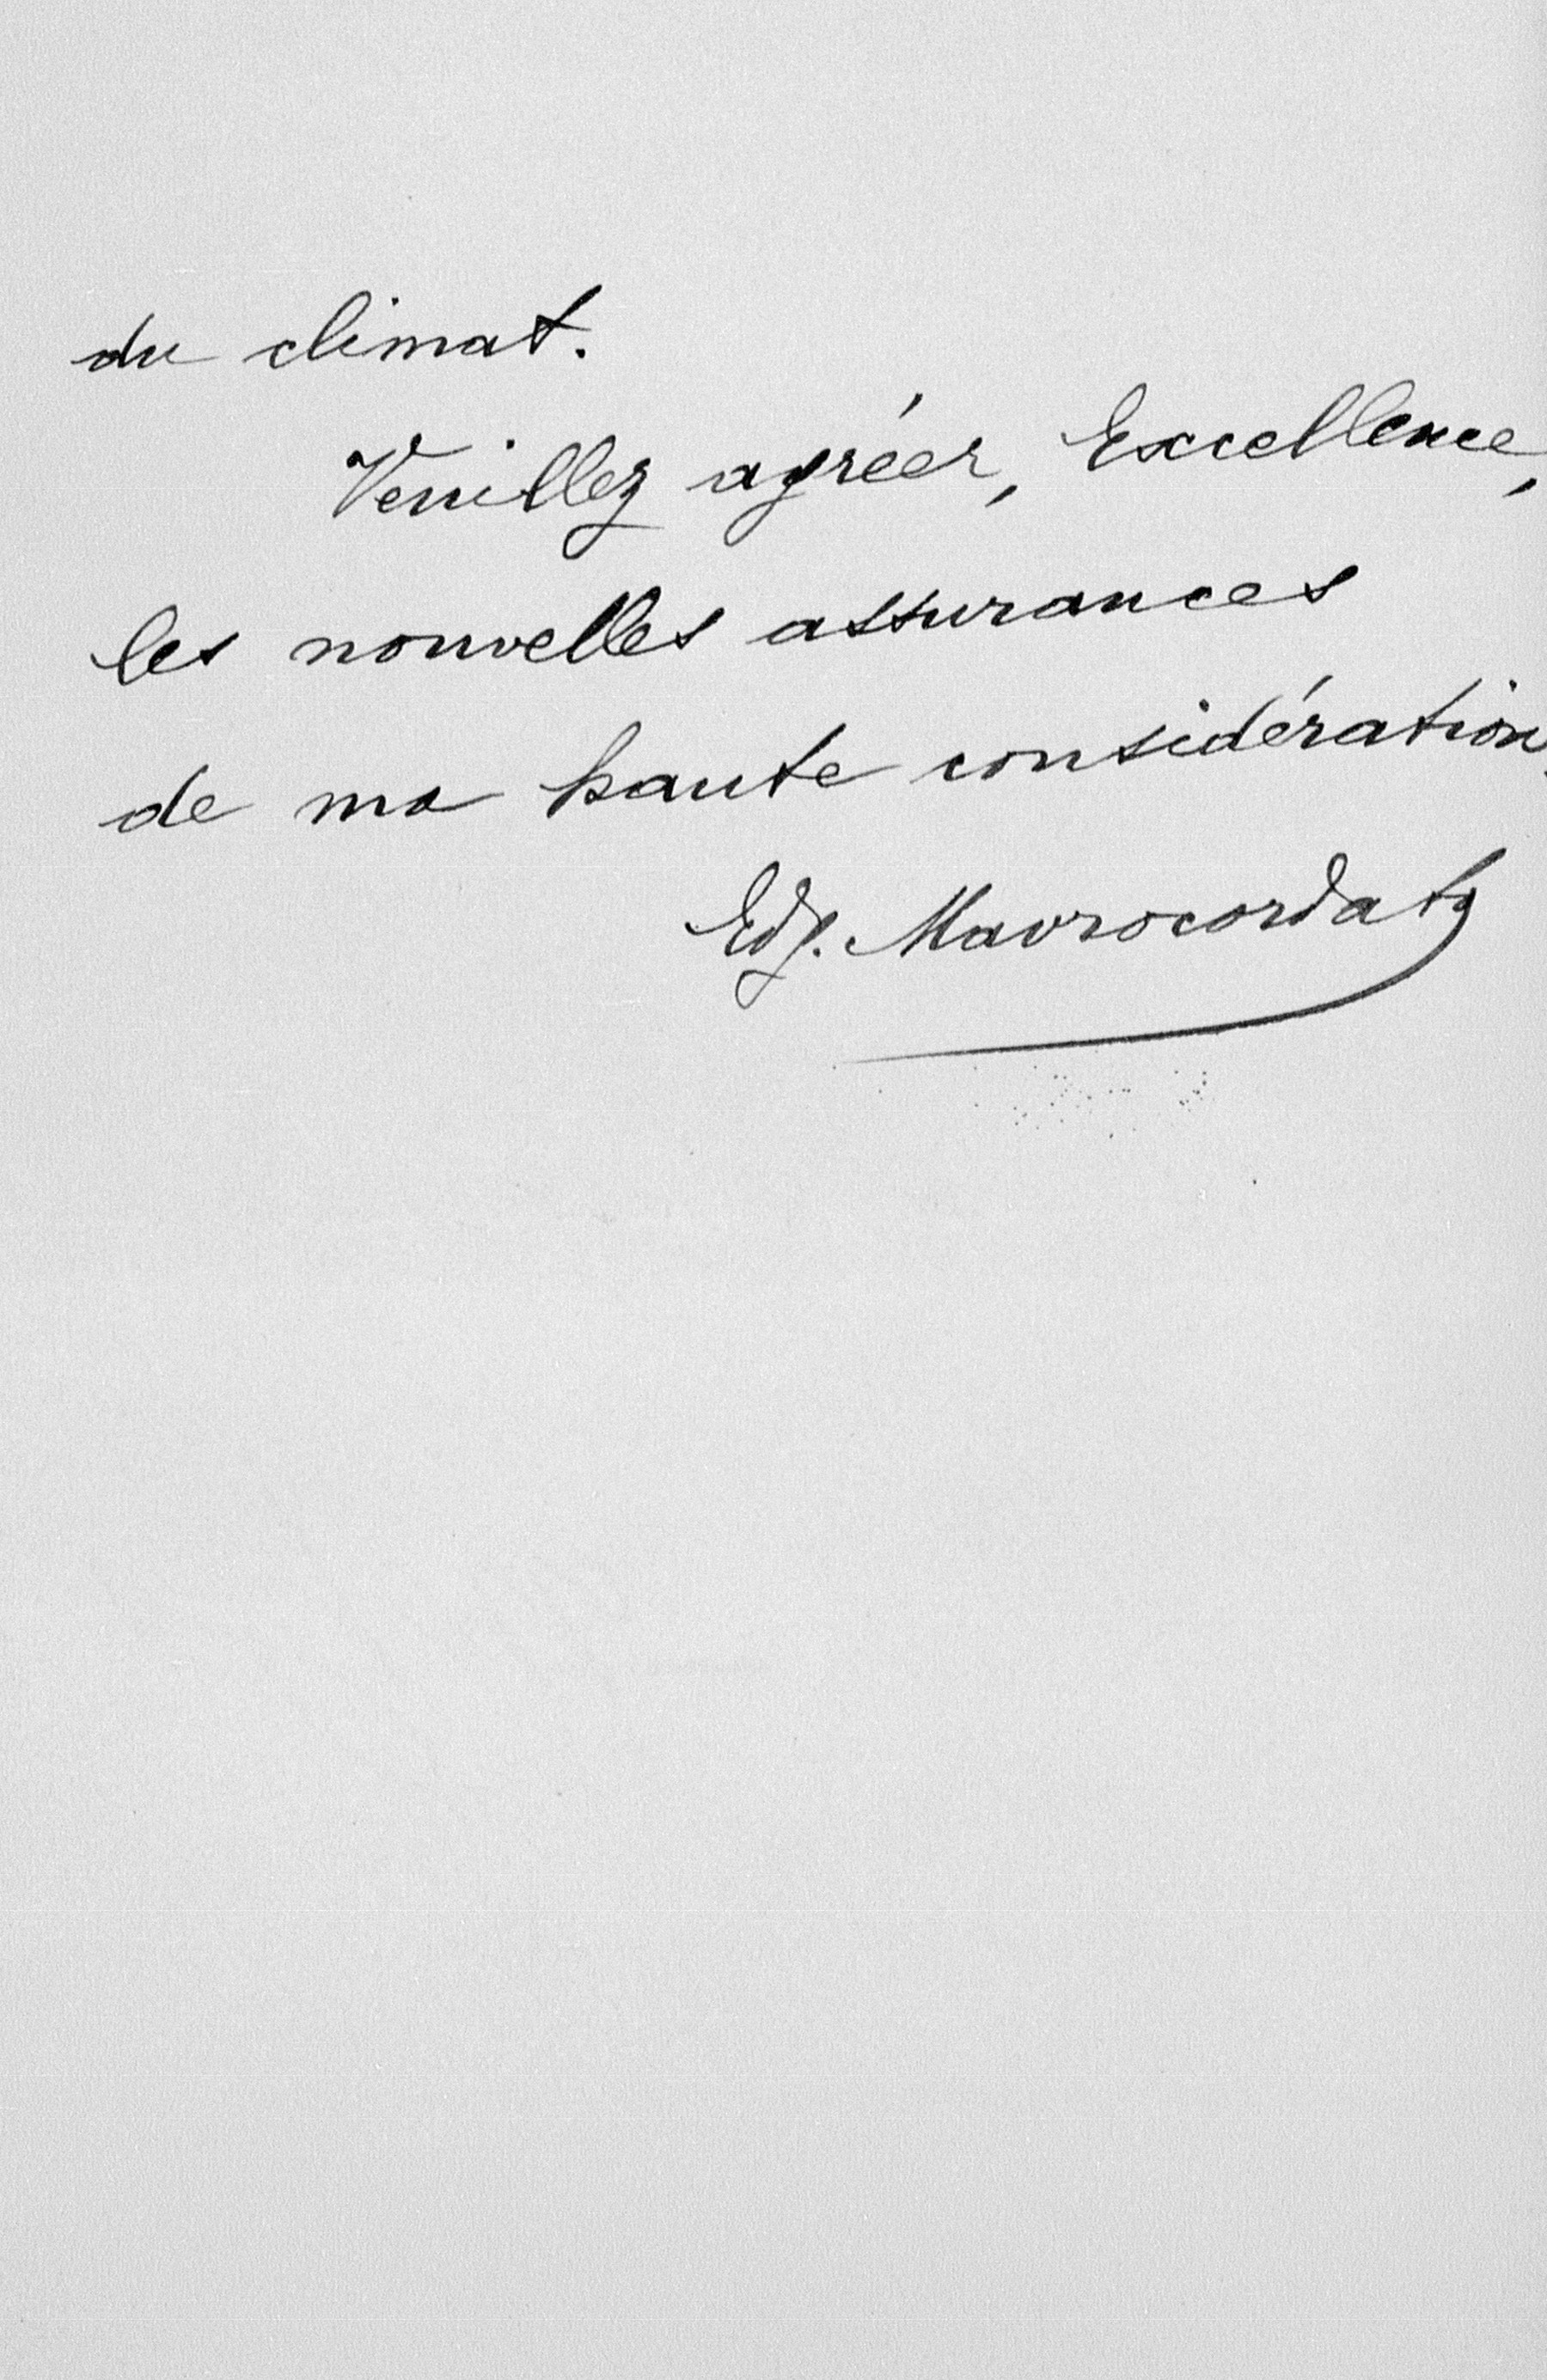 du climat.
Veuillez agréer, Excellence,
les nouvelles assurances
de ma haute considération.
Edg. Mavrocordato